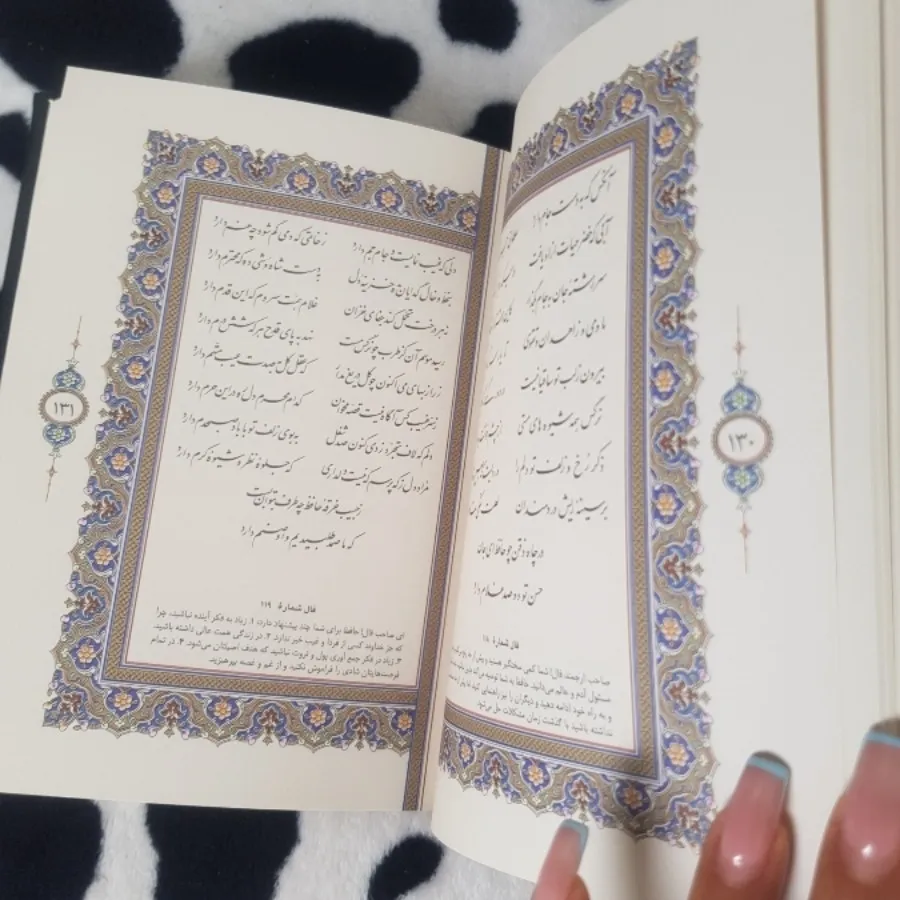 آنکس که به دست جام دارد
آبی که خضر حیات از او یافت
سررشتهٔ جان به جام بگذار
ما و می و زاهدان و تقوی
بیرون ز لب تو ساقیا نیست
نرگس همه شیوه های مستی
ذکر رخ و زلف تو دلم را
بر سینهٔ ریش دردمندان
در چاه ذقن چو حافظ ای جان
حسن تو دو صد غلام دارد
فال شمارهٔ ۱۱۸
صاحب ارجمند فال! شما کمی سختگیر هستید و بیش از حد
مسئول آدم و عالم می‌دانید. حافظ به شما توصیه می‌کند
و به راه خود ادامه دهید و دیگران را نیز راهنمایی کنید
نداشته باشید با گذشت زمان مشکلات حل می‌شود.
۱۳۰
دلی که غیب نمایست و جام جم دارد ز خاتمی که دمی گم شود چه غم دارد
به خط و خال گدایان مده خزینهٔ دل به دست شاه وشی ده که محترم دارد
نه هر درخت تحمل کند جفای خزان غلام همت سروم که این قدم دارد
رسید موسم آن کز طرب چو نرگس مست نهد به پای قدح هر که شش درم دارد
زر از بهای می اکنون چو گل دریغ مدار که عقل کل به صدت عیب متهم دارد
ز سر غیب کس آگاه نیست قصه مخوان کدام محرم دل ره در این حرم دارد
دلم که لاف تجرد زدی کنون صد شغل به بوی زلف تو با باد صبحدم دارد
مراد دل ز که پرسم که نیست دلداری که جلوهٔ نظر و شیوهٔ کرم دارد
ز جیب خرقهٔ حافظ چه طرف بتوان بست
که ما صمد طلبیدیم و او صنم دارد
فال شمارهٔ ۱۱۹
ای صاحب فال! حافظ برای شما چند پیشنهاد دارد. ۱. زیاد به فکر آینده نباشید، چرا
که جز خداوند کسی از فردا و غیب خبر ندارد. ۲. در زندگی همت عالی داشته باشید.
۳. زیاد در فکر جمع آوری پول و ثروت نباشید که هدف اصلیتان می‌شود. ۴. در تمام
فرصت‌هایتان شادی را فراموش نکنید و از غم و غصه بپرهیزید.
۱۳۱